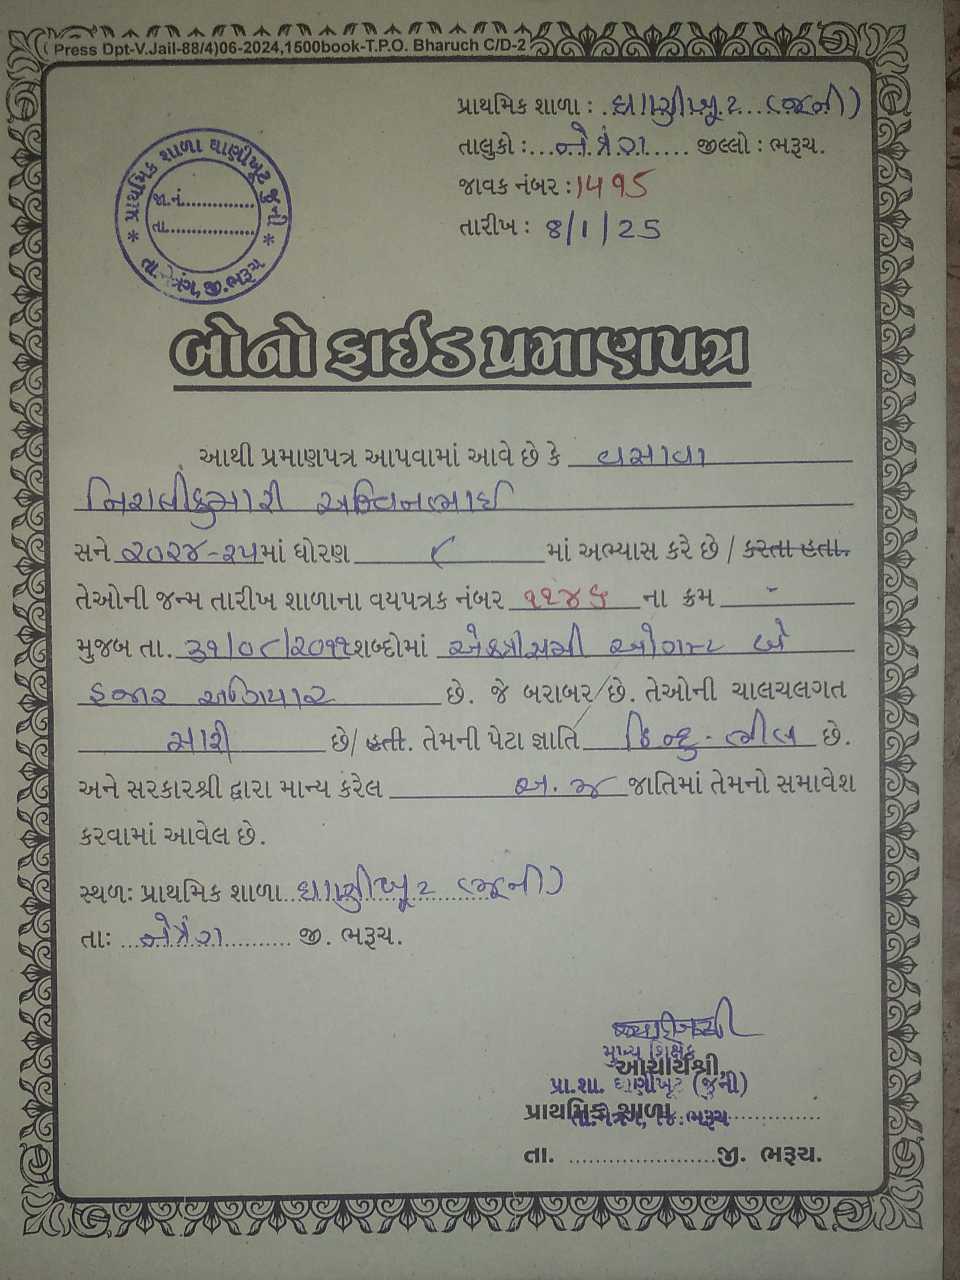 ( Press Dpt-V.Jail-88/4)06-2024,1500book-T.P.O. Bharuch C/D-2
પ્રાથમિક શાળા : ઘાણીખૂટ (જૂની)
તાલુકો :...નેત્રંગ..... જીલ્લો : ભરૂચ.
જાવક નંબર : 1495
તારીખ : 8/1/25
પ્રાથમિક શાળા ઘાણીખૂટ જુની
જા.નં...............
તા...................
તા.નેત્રંગ, જી.ભરૂચ
બોનોફાઈડ પ્રમાણપત્ર
આથી પ્રમાણપત્ર આપવામાં આવે છે કે વસાવા
અશ્વિનભાઈ
સને ૨૦૨૪-૨૫માં ધોરણ ૮ માં અભ્યાસ કરે છે / કરતા હતા.
તેઓની જન્મ તારીખ શાળાના વયપત્રક નંબર ના ક્રમ -
મુજબ તા. ૩૧/૦૮/૨૦૧૧ શબ્દોમાં એકત્રીસમી ઓગસ્ટ બે
હજાર અગિયાર છે. જે બરાબર છે. તેઓની ચાલચલગત
સારી છે/ હતી. તેમની પેટા જ્ઞાતિ હિન્દુ - ભીલ છે.
અને સરકારશ્રી દ્વારા માન્ય કરેલ અ. જ જાતિમાં તેમનો સમાવેશ
કરવામાં આવેલ છે.
સ્થળઃ પ્રાથમિક શાળા ઘાણીખૂટ (જૂની)
તાઃ ...નેત્રંગ.......... જી. ભરૂચ.
મુખ્ય શિક્ષક
આચાર્યશ્રી,
પ્રા.શા. ઘાણીખૂટ (જુની)
પ્રાથમિક શાળા
તા.નેત્રંગ, જી. ભરૂચ
તા. .....................જી. ભરૂચ.